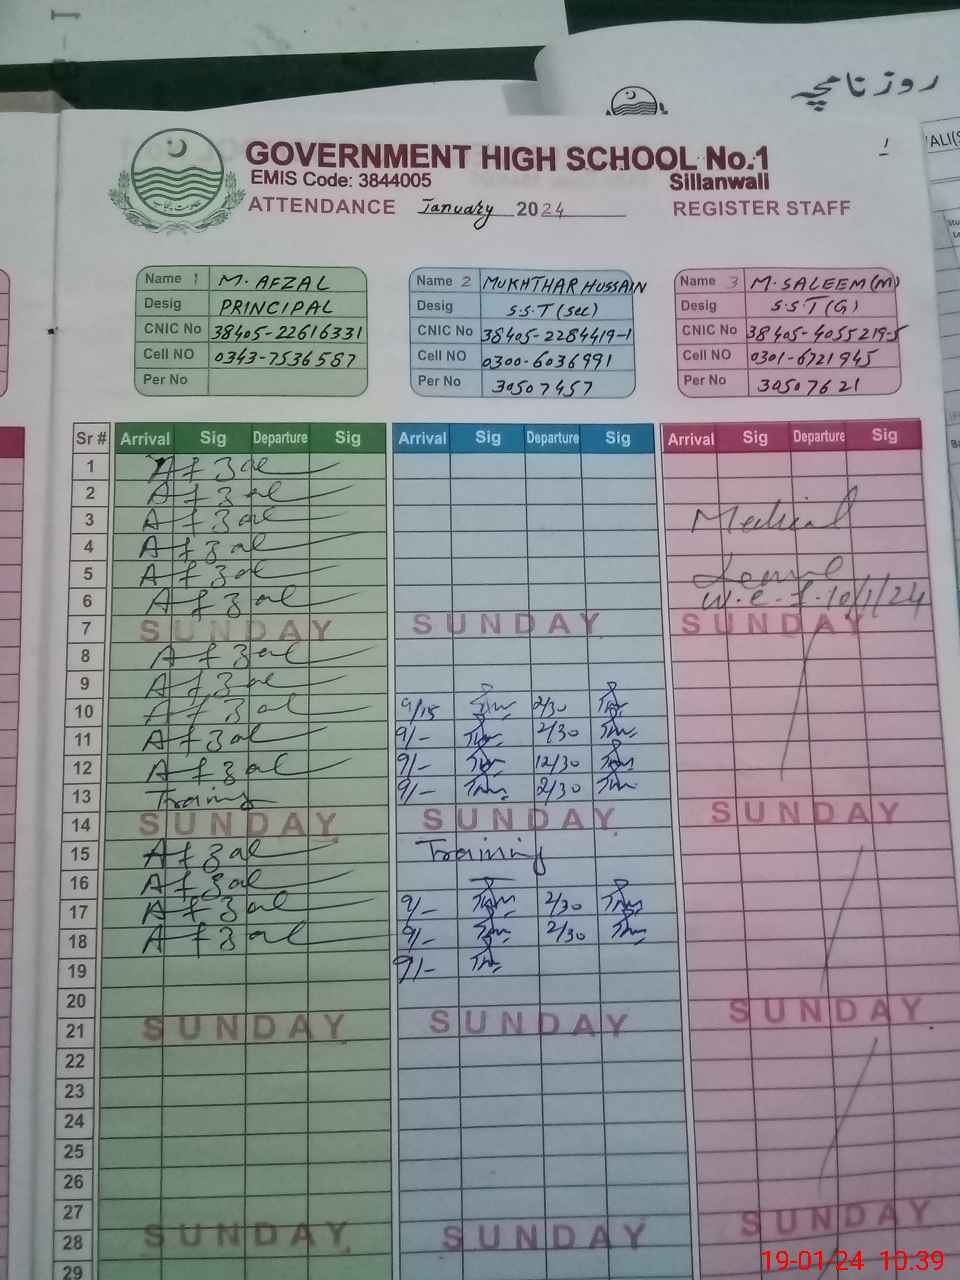 روزنامچہ
GOVERNMENT HIGH SCHOOL No.1
EMIS Code: 3844005 Sillanwali
ATTENDANCE January 2024 REGISTER STAFF
ALI(S
Name 1 M. AFZAL
Desig PRINCIPAL
CNIC No 38405-22616331
Cell NO 0343-7536587
Per No
Name 2 MUKHTHAR HUSSAIN
Desig S.S.T (Sec)
CNIC No 38405-2284419-1
Cell NO 0300-6036991
Per No 30507457
Name 3 M. SALEEM (M)
Desig S.S.T (G)
CNIC No 38405-4055219-5
Cell NO 0301-6721945
Per No 30507621
Sr # Arrival Sig Departure Sig Arrival Sig Departure Sig Arrival Sig Departure Sig
1 Afzal
2 Afzal
3 Afzal Medical
4 Afzal
5 Afzal Leave
6 Afzal W.e.f. 10/1/24
7 SUNDAY SUNDAY SUNDAY
8 Afzal
9 Afzal
10 Afzal 9/15 2/30
11 Afzal 9/- 2/30
12 Afzal 9/- 12/30
13 Training 9/- 2/30
14 SUNDAY SUNDAY SUNDAY
15 Afzal Training
16 Afzal
17 Afzal 9/- 2/30
18 Afzal 9/- 2/30
19 9/-
20
21 SUNDAY SUNDAY SUNDAY
22
23
24
25
26
27
28 SUNDAY SUNDAY SUNDAY
29
19-01-24 10.39